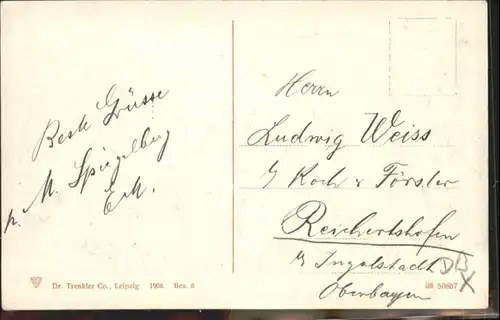 Beste Grüsse
p. M. Spiegelberg
Herrn
Ludwig Weiss
Koch & Förster
Reichertshofen
Ingolstadt
Oberbayern
Dr. Trenkler Co., Leipzig. 1908. Bea. 6
50867
DB